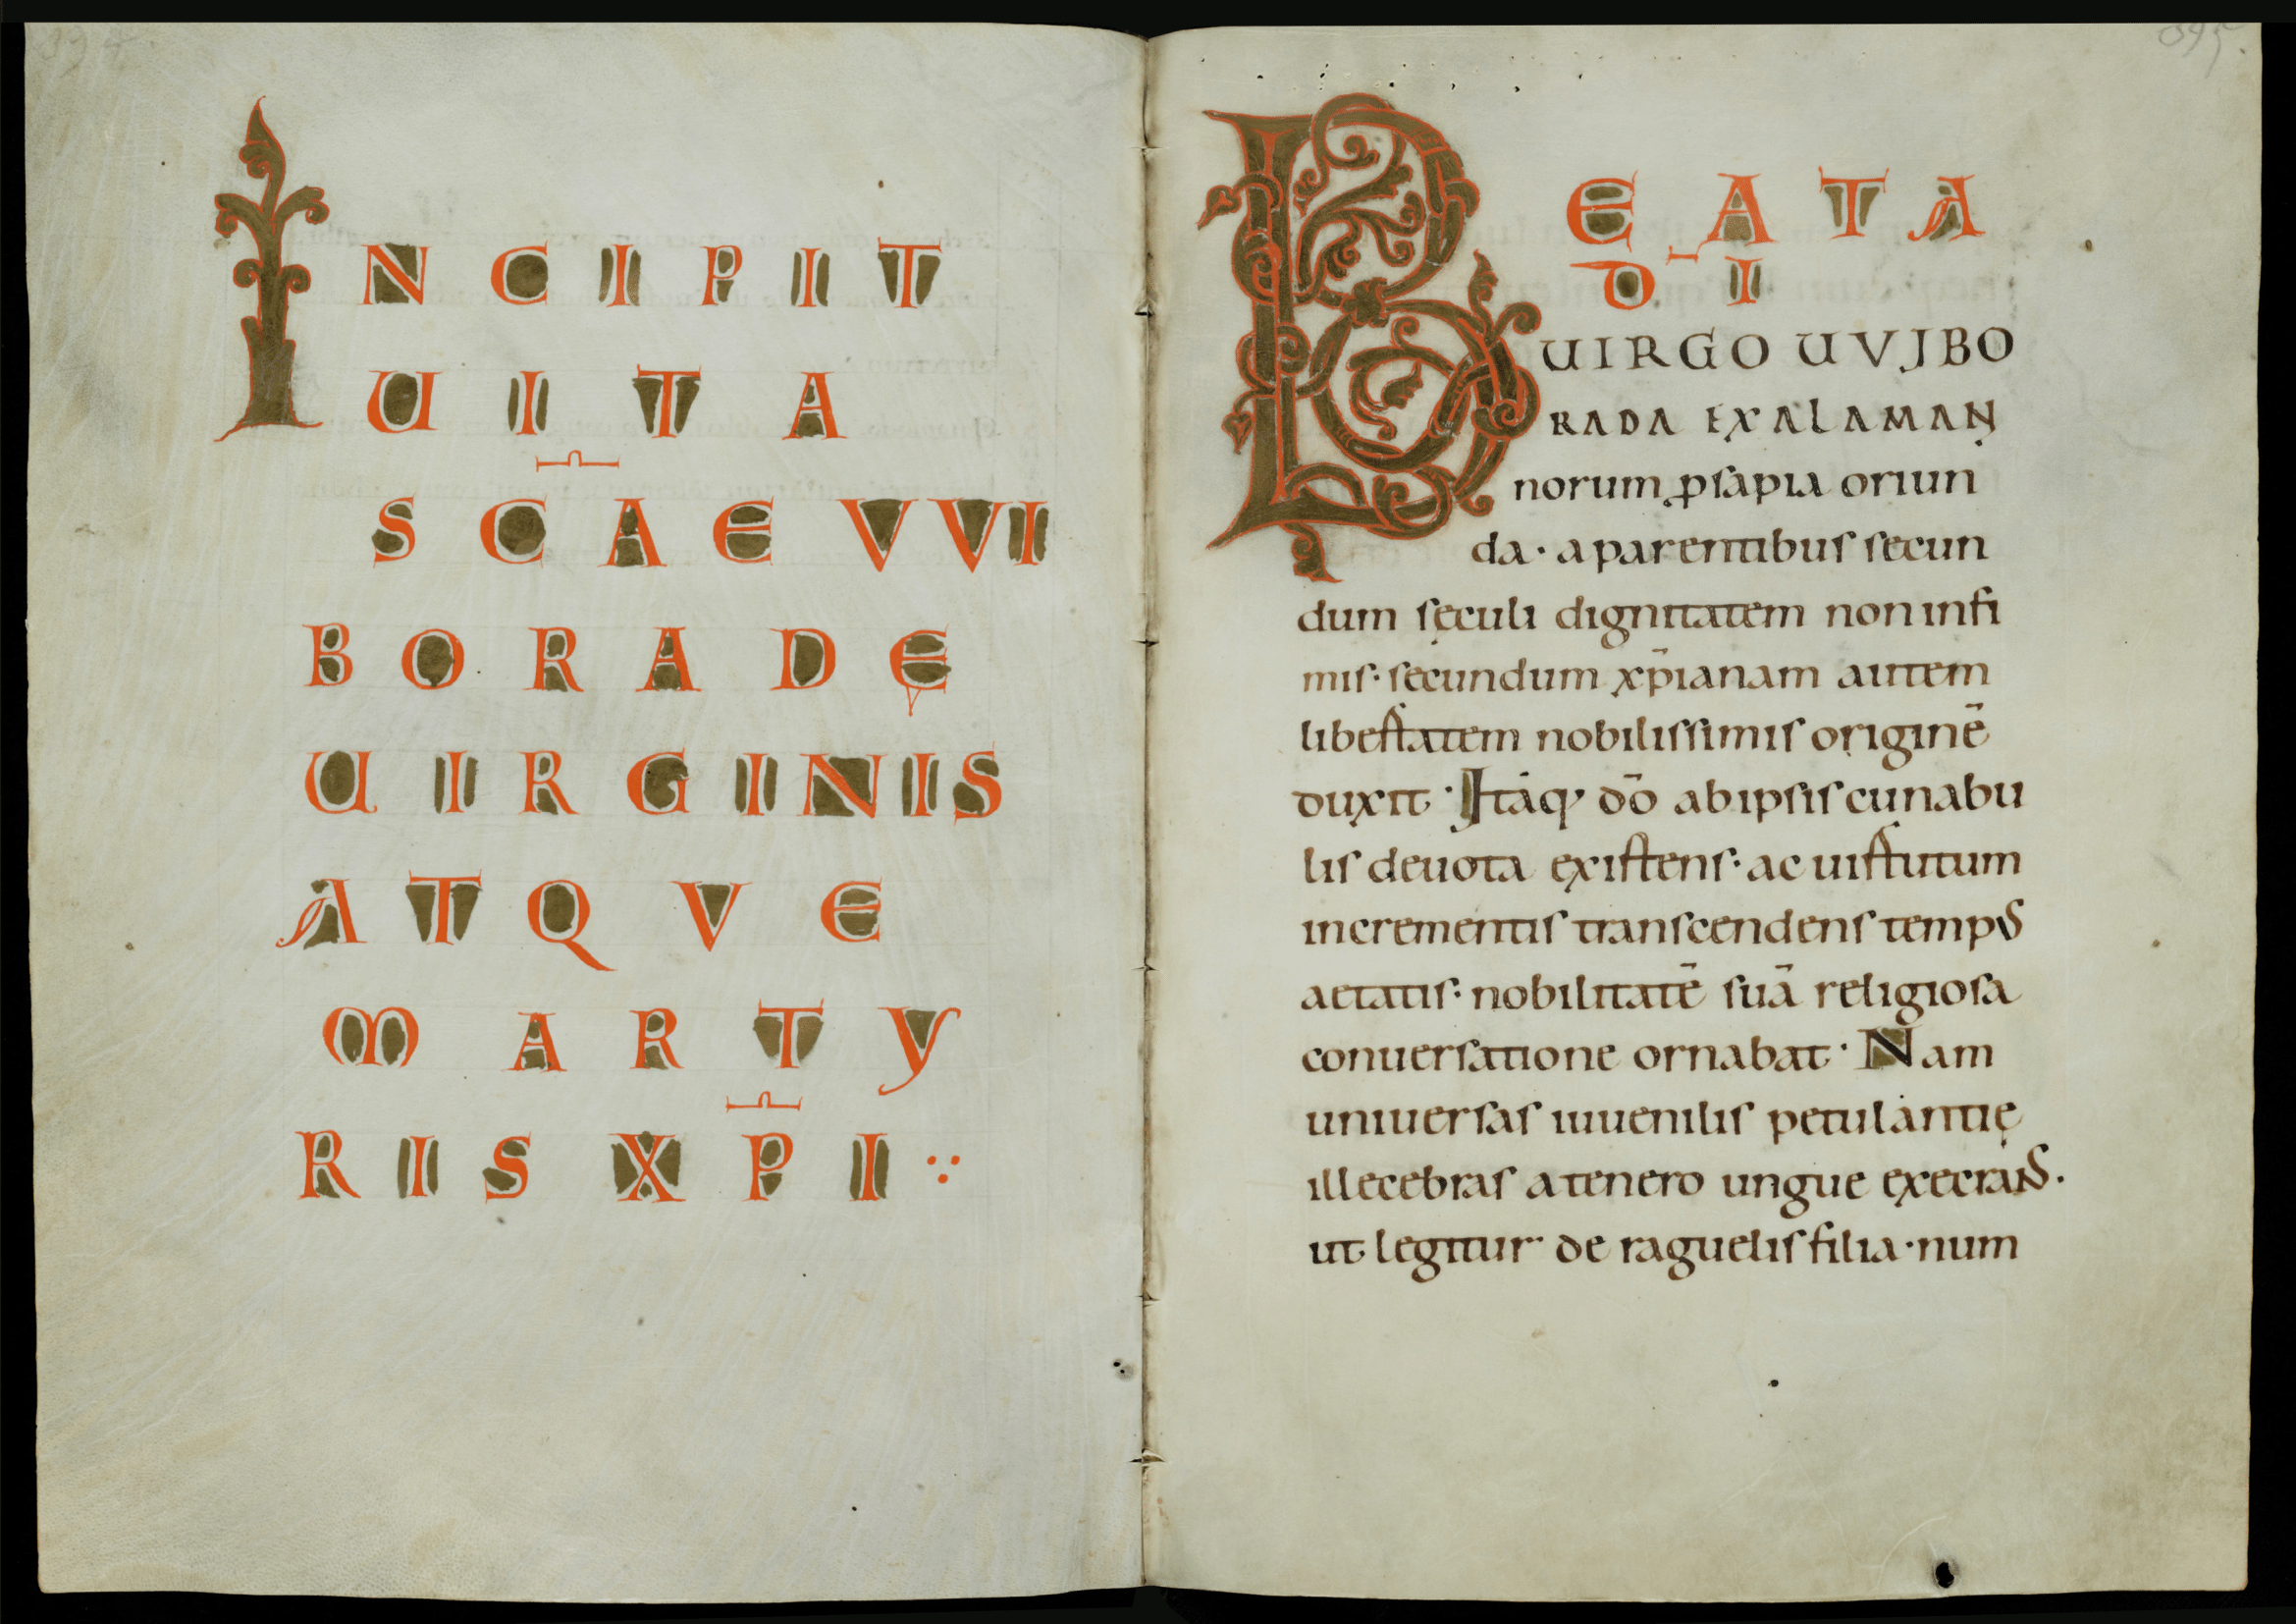 INCIPIT
UITA
SC̄AE VVI
BORADĘ
UIRGINIS
ATQVE
MARTY
RIS XP̄I
BEATA
D̄I
UIRGO UVIBO
RADA EX ALAMAN
norum ꝓsapia oriun
da· a parentibus secun
dum sęculi dignitatem non infi
mis· secundum xp̄ianam autem
libertatem nobilissimis originē
duxit· Itaq· dō ab ipsis cunabu
lis deuota existens· ac uirtutum
incrementis transcendens tempus
aetatis· nobilitatē suā religiosa
conuersatione ornabat· Nam
uniuersas iuuenilis petulantię
illecebras a tenero ungue execrans.
ut legitur de raguelis filia· num